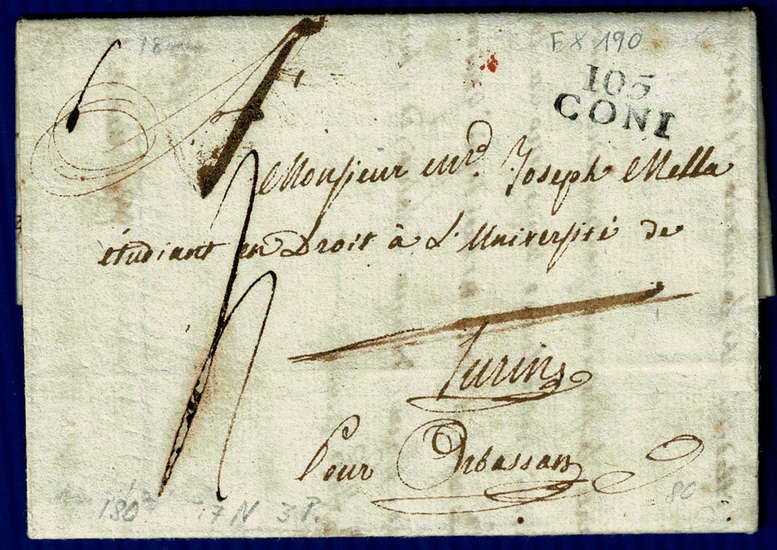 EX 190
105
CONI
A
Monsieur Mr. Joseph Mella
étudiant en Droit à L'Université de
Turin
Pour Orbassan
180 7 N 3 P.
80